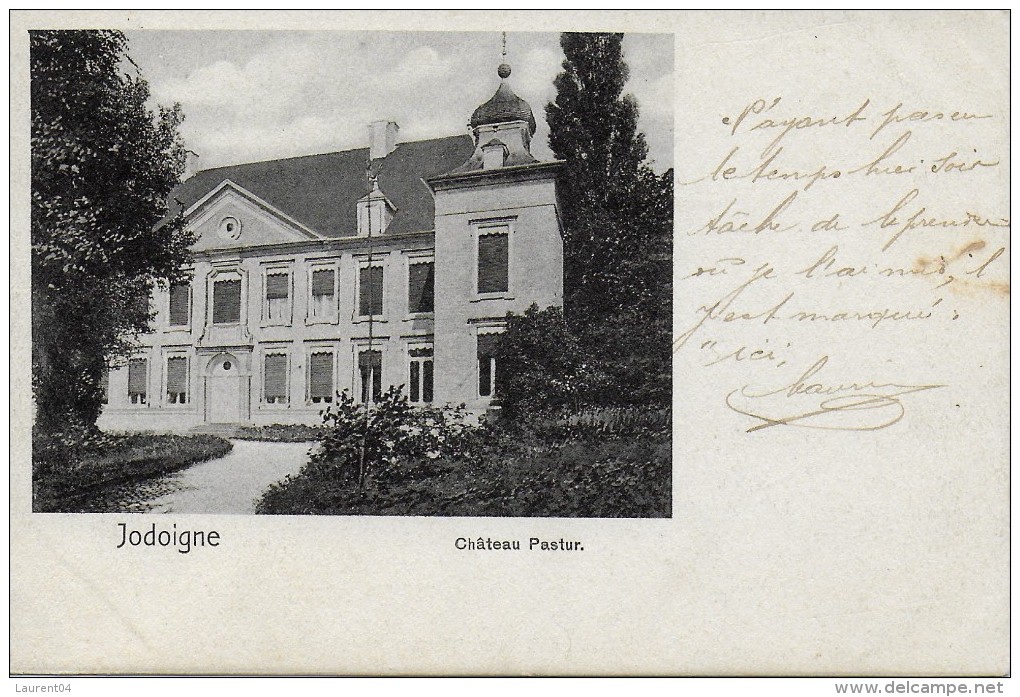 N'ayant pas eu
le temps hier soir
tâche de le prendre
où je l'ai mis, il
est marqué
"ici,
Jodoigne
Château Pastur.
Laurent04
www.delcampe.net